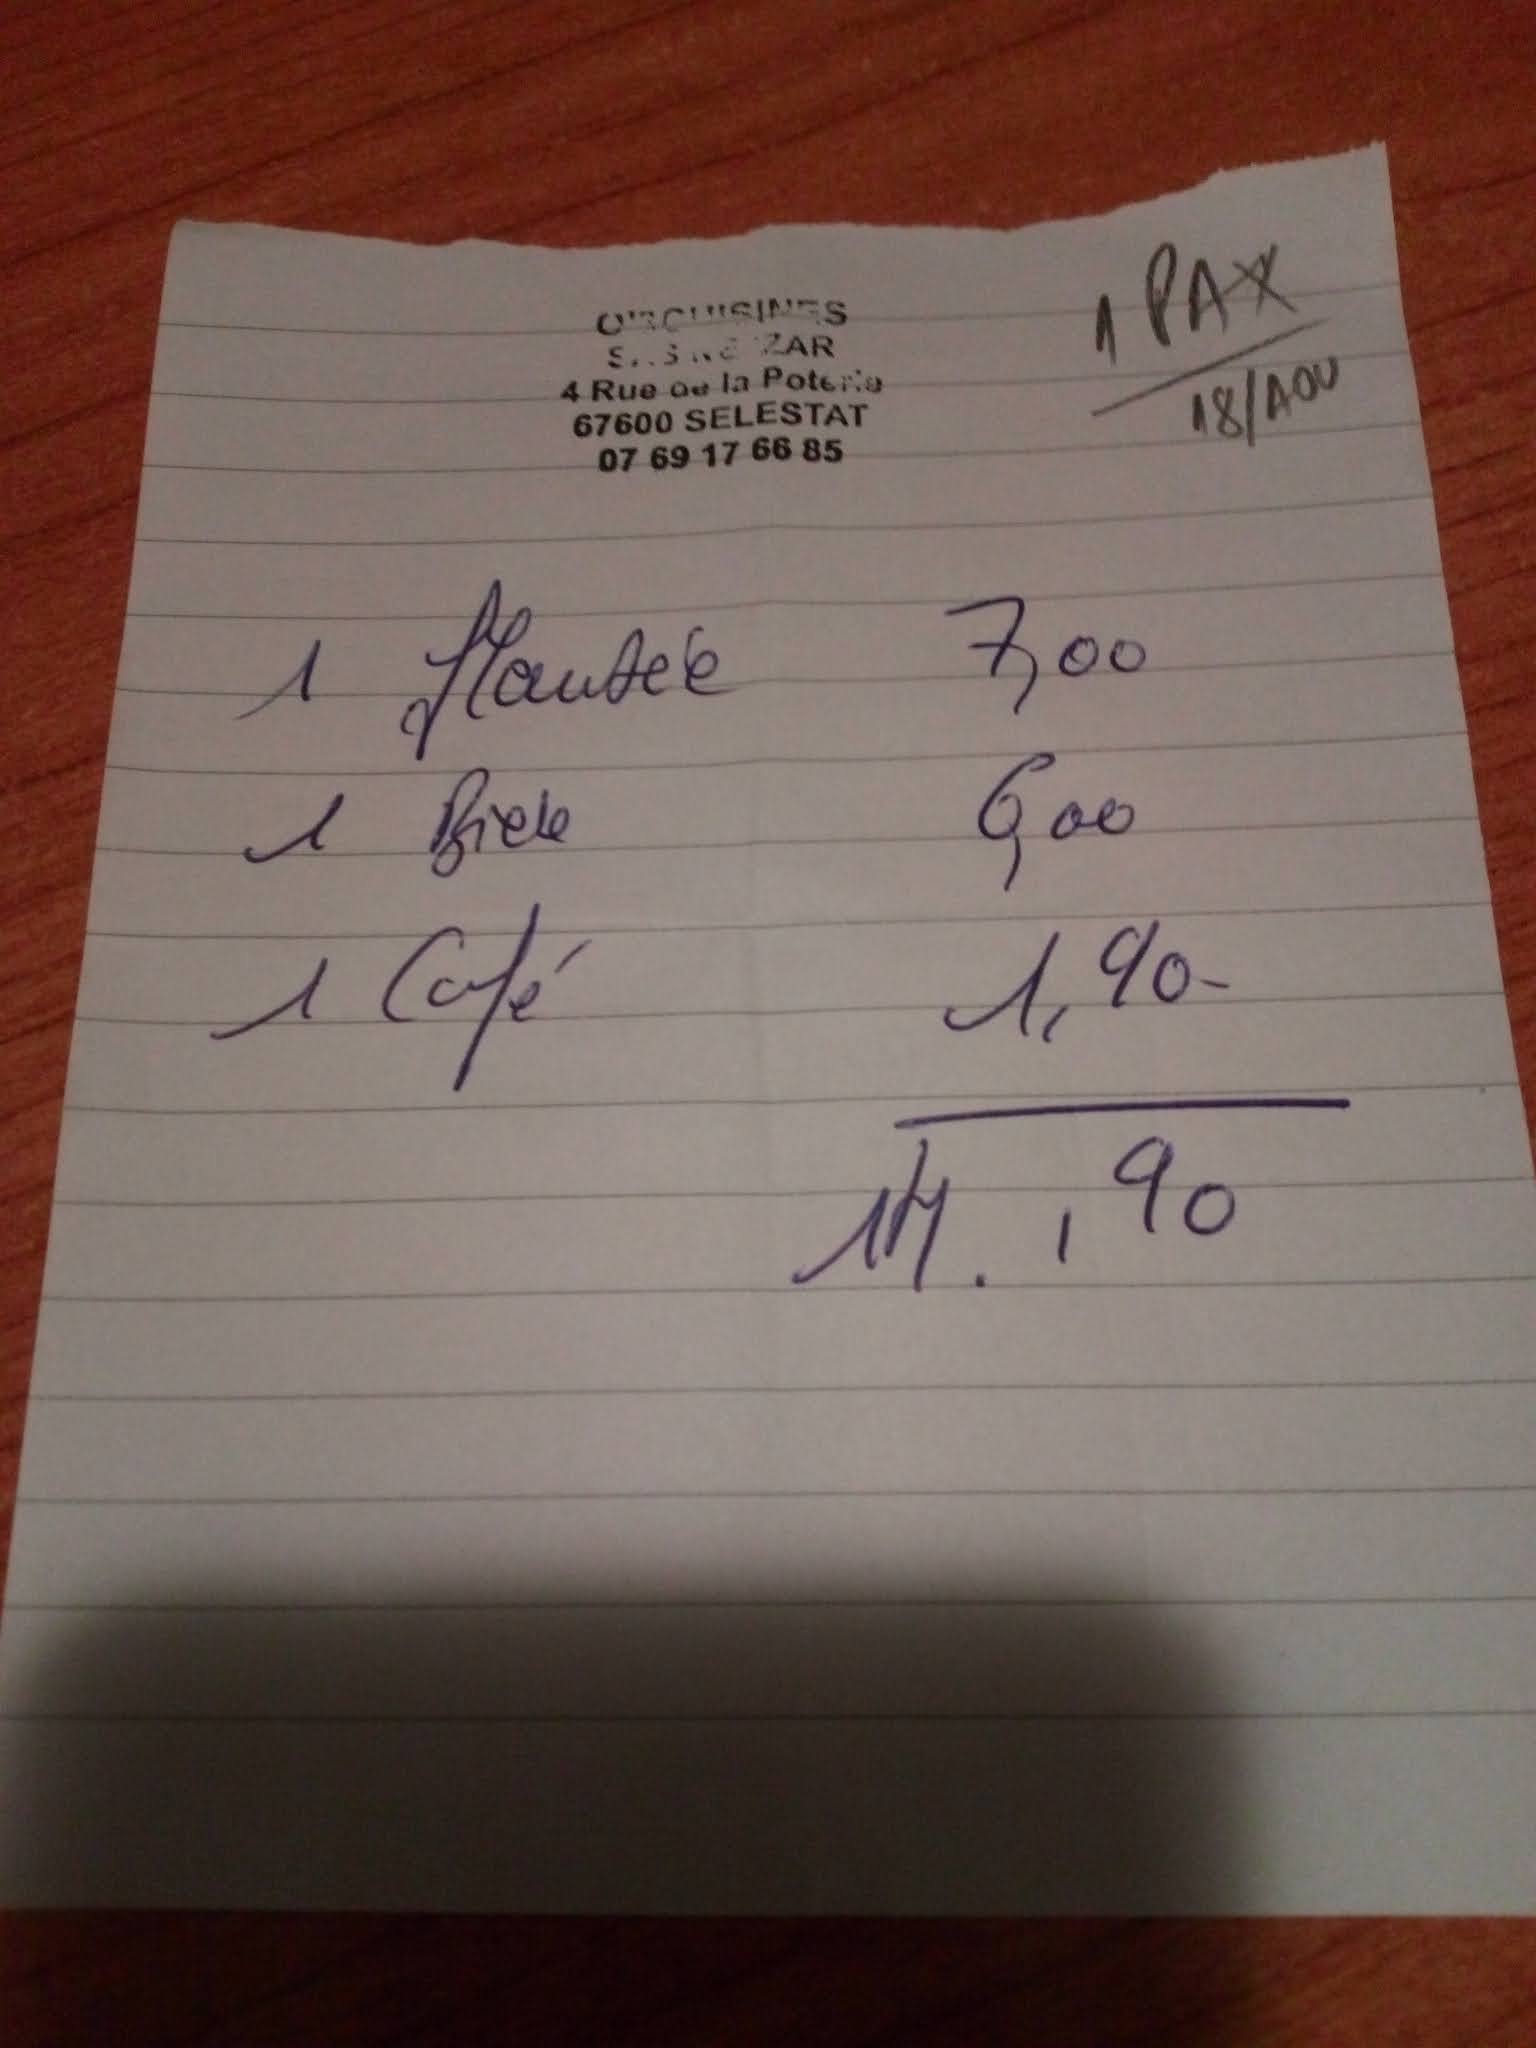 1 PAX
18/AOU
ZAR
4 Rue de la Poterie
67600 SELESTAT
07 69 17 66 85
1 7,00
1 Biere 6,00
1 Café 1,90-
14. ,90